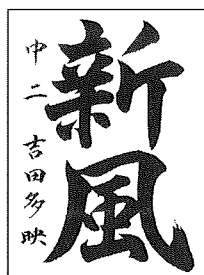 新風
中二 吉田多映